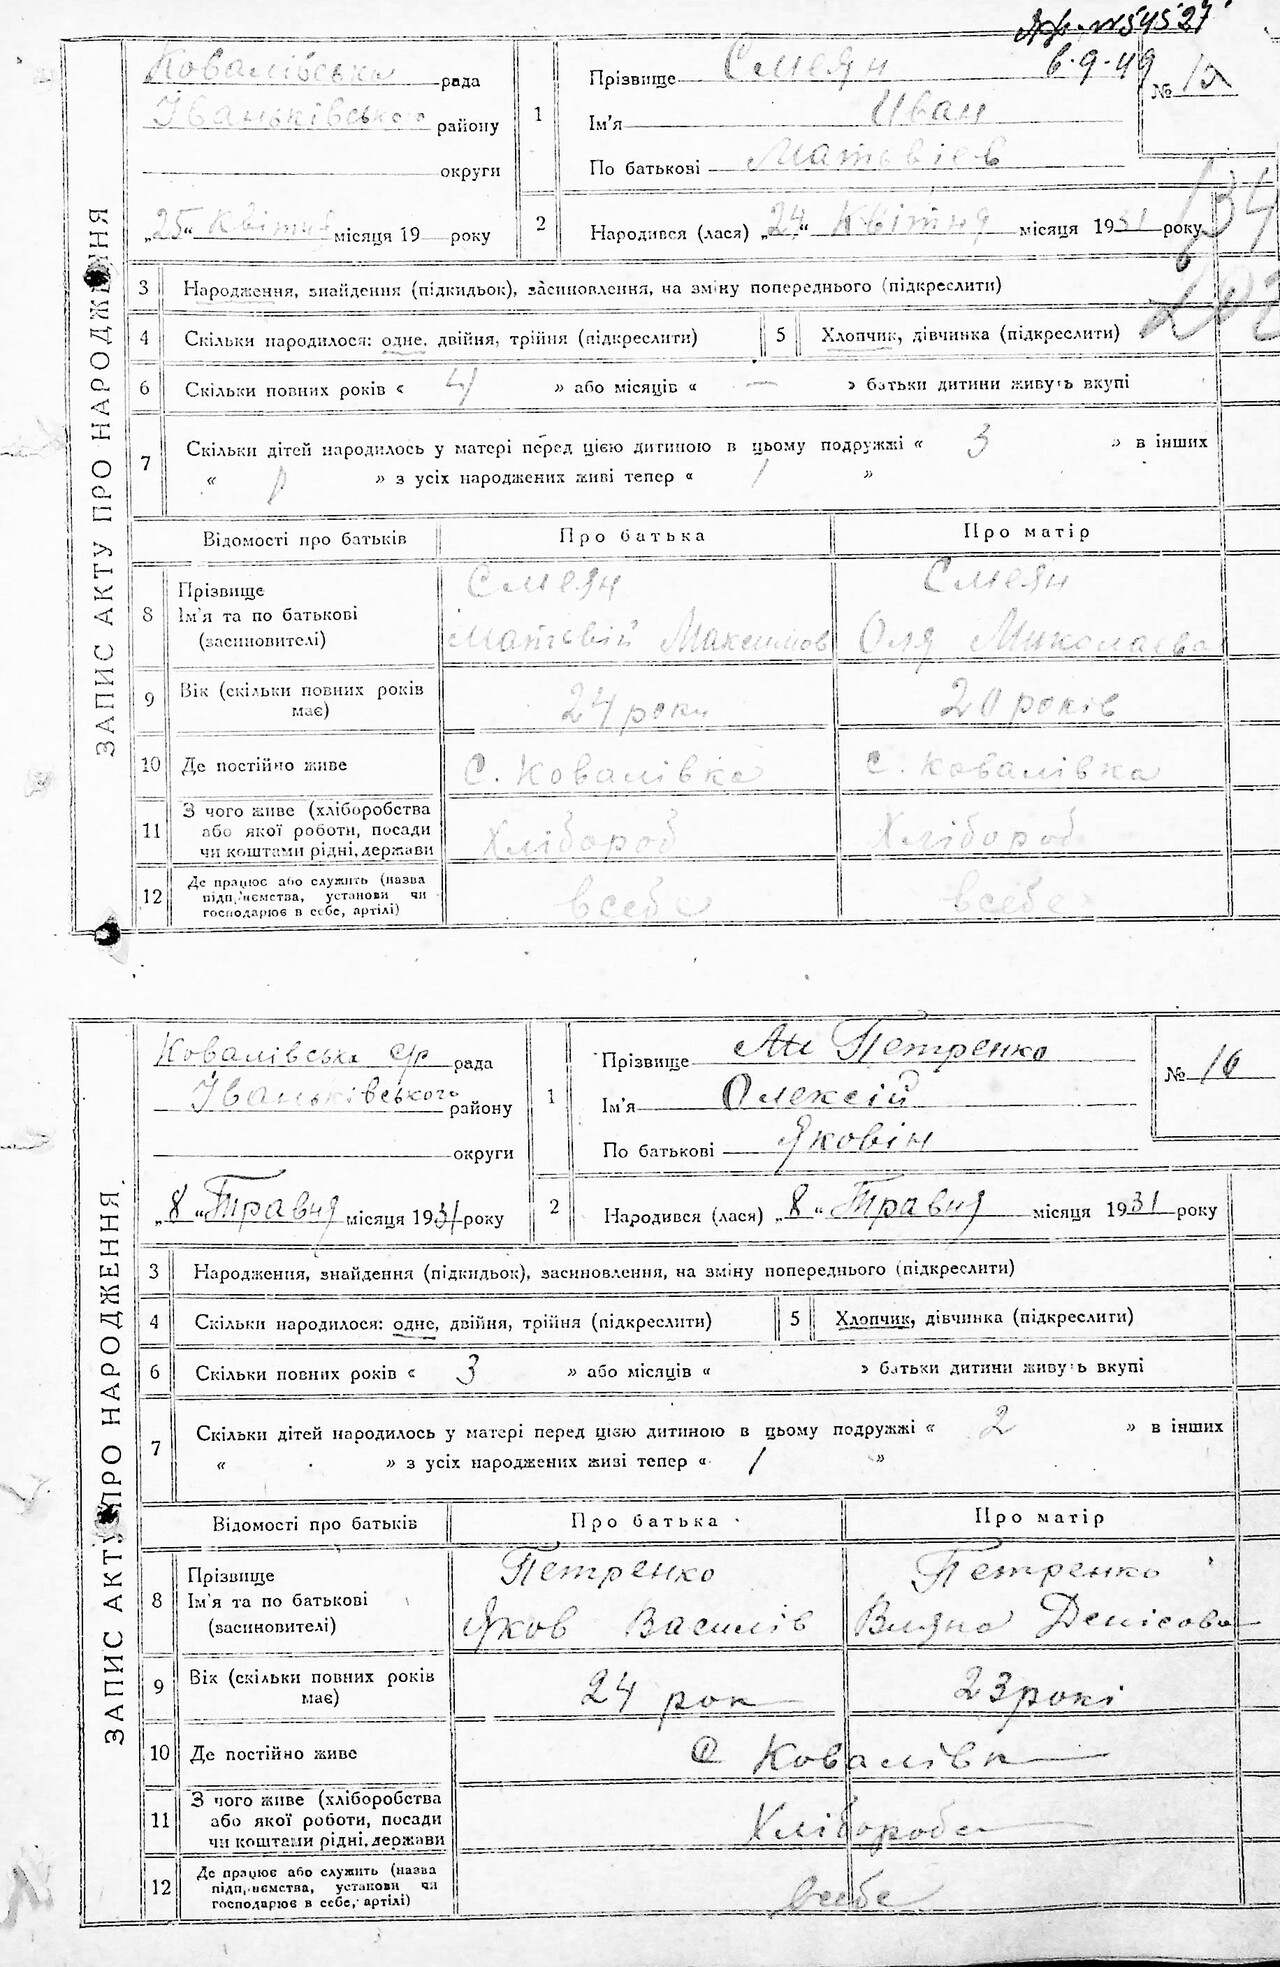 №54527
6.9.49
Ковалівська рада
Іваньківського району
округи
„25“ Квітня місяця 19 року
1
Прізвище Смеян
Ім'я Иван
По батькові Матьвієв
№ 15
2
Народився (лася) „24“ Квітня місяця 1931 року
134
202
ЗАПИС АКТУ ПРО НАРОДЖЕННЯ
3 Народження, знайдення (підкидьок), засиновлення, на зміну попереднього (підкреслити)
4 Скільки народилося: одне, двійня, трійня (підкреслити) 5 Хлопчик, дівчинка (підкреслити)
6 Скільки повних років « 4 » або місяців « — » батьки дитини живуть вкупі
7 Скільки дітей народилось у матері перед цією дитиною в цьому подружжі « 3 » в інших
« » з усіх народжених живі тепер « 1 »
Відомості про батьків Про батька Про матір
8 Прізвище Смеян Смеян
Ім'я та по батькові Матьвій Максимов Оля Миколаєва
(засиновителі)
9 Вік (скільки повних років має) 24 роки 20 років
10 Де постійно живе С. Ковалівка С. Ковалівка
11 З чого живе (хліборобства або якої роботи, посади чи коштами рідні, держави Хлібороб Хлібороб
12 Де працює або служить (назва підприємства, установи чи господарює в себе, артілі) всебе всебе
Ковалівська с/р рада
Іваньківського району
округи
„8“ Травня місяця 1931 року
1
Прізвище Петренко
Ім'я Олексій
По батькові Яковін
№ 16
2
Народився (лася) „8“ Травня місяця 1931 року
ЗАПИС АКТУ ПРО НАРОДЖЕННЯ
3 Народження, знайдення (підкидьок), засиновлення, на зміну попереднього (підкреслити)
4 Скільки народилося: одне, двійня, трійня (підкреслити) 5 Хлопчик, дівчинка (підкреслити)
6 Скільки повних років « 3 » або місяців « » батьки дитини живуть вкупі
7 Скільки дітей народилось у матері перед цією дитиною в цьому подружжі « 2 » в інших
« » з усіх народжених живі тепер « 1 »
Відомості про батьків Про батька Про матір
8 Прізвище Петренко Петренко
Ім'я та по батькові Яков Василів Денісова
(засиновителі)
9 Вік (скільки повних років має) 24 рок 23 рокі
10 Де постійно живе С Ковалівк
11 З чого живе (хліборобства або якої роботи, посади чи коштами рідні, держави Хлібороба
12 Де працює або служить (назва підприємства, установи чи господарює в себе, артілі) всебе